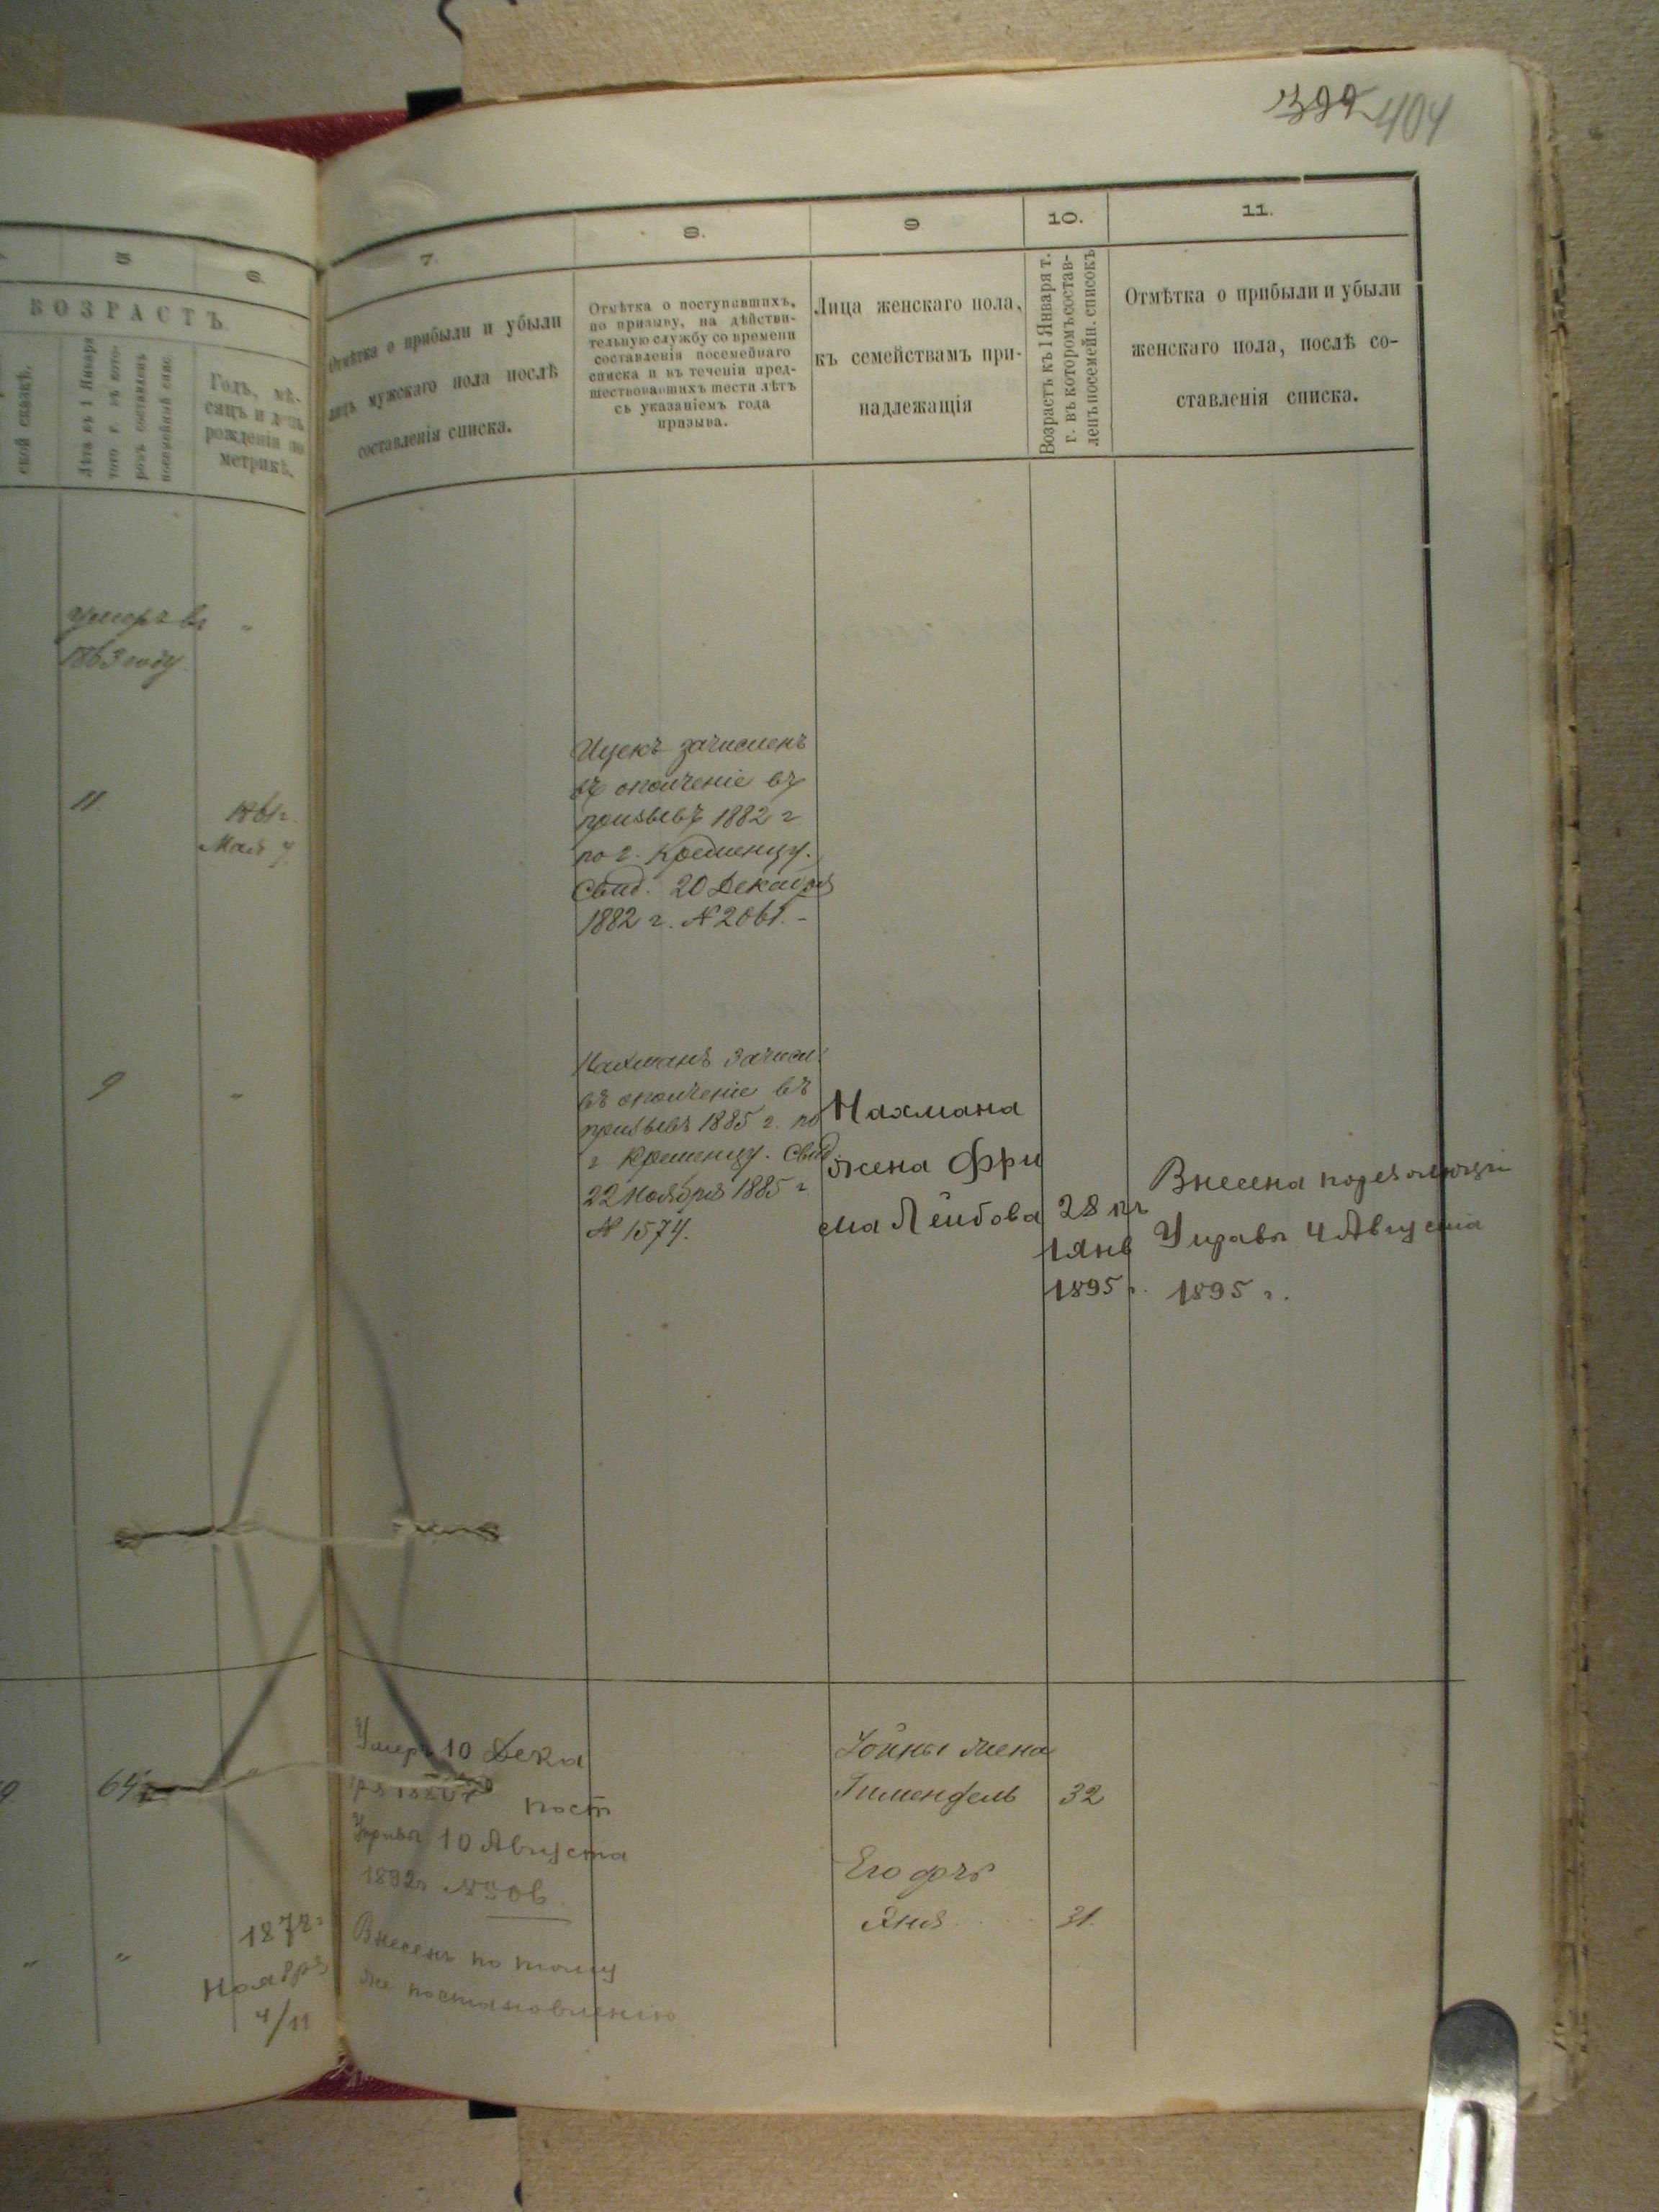 399 404
5
6.
ВОЗРАСТЪ
ской сказкѣ.
Лѣта къ 1 Января
того г. въ кото-
ромъ составленъ
посемейный спис.
Годъ, мѣ-
сяцъ и день
рожденія по
метрикѣ.
умеръ въ "
1863 году
11.
1861 г.
Мая 7
9 "
64
1872 г
Ноября
4/11
" "
7.
Отмѣтка о прибыли и убыли
лицъ мужскаго пола послѣ
составленія списка.
Умеръ 10 Дека
пост
Управы 10 Августа
1892 г
Внесенъ по тому
же постановленію
8.
Отмѣтка о поступившихъ,
по призыву, на дѣйстви-
тельную службу со времени
составленія посемейнаго
списка и въ теченіи пред-
шествовавшихъ шести лѣтъ
съ указаніемъ года
призыва.
Ицекъ зачисленъ
въ ополченіе въ
призывъ 1882 г
по г. Кременцу.
Свид. 20 Декабря
1882 г. № 2061. -
Нахманъ зачисл.
въ ополченіе въ
призывъ 1885 г. по
г Кременцу. Свид.
22 Ноября 1885 г
№ 1574.
9
Лица женскаго пола,
къ семействамъ при-
надлежащія
Нахмана
жена Фри
ма Лейбова
жена
32
Его дочь
31.
10.
Возрастъ къ 1 Января т.
г. въ которомъ состав-
ленъ посемейн. списокъ
28 къ
1 янв
1895 г.
11.
Отмѣтка о прибыли и убыли
женскаго пола, послѣ со-
ставленія списка.
Внесена по резолюціи
Управы 4 Августа
1895 г.